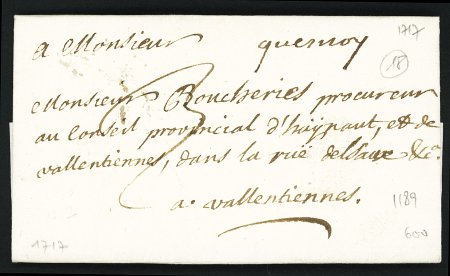 1717
a Monsieur quesnoy
18
Monsieur Boucheries procureur
au Conseil provincial d'haynaut, et de
vallentiennes, dans la rue &c.ª
a vallentiennes.
3
1189
1717
600